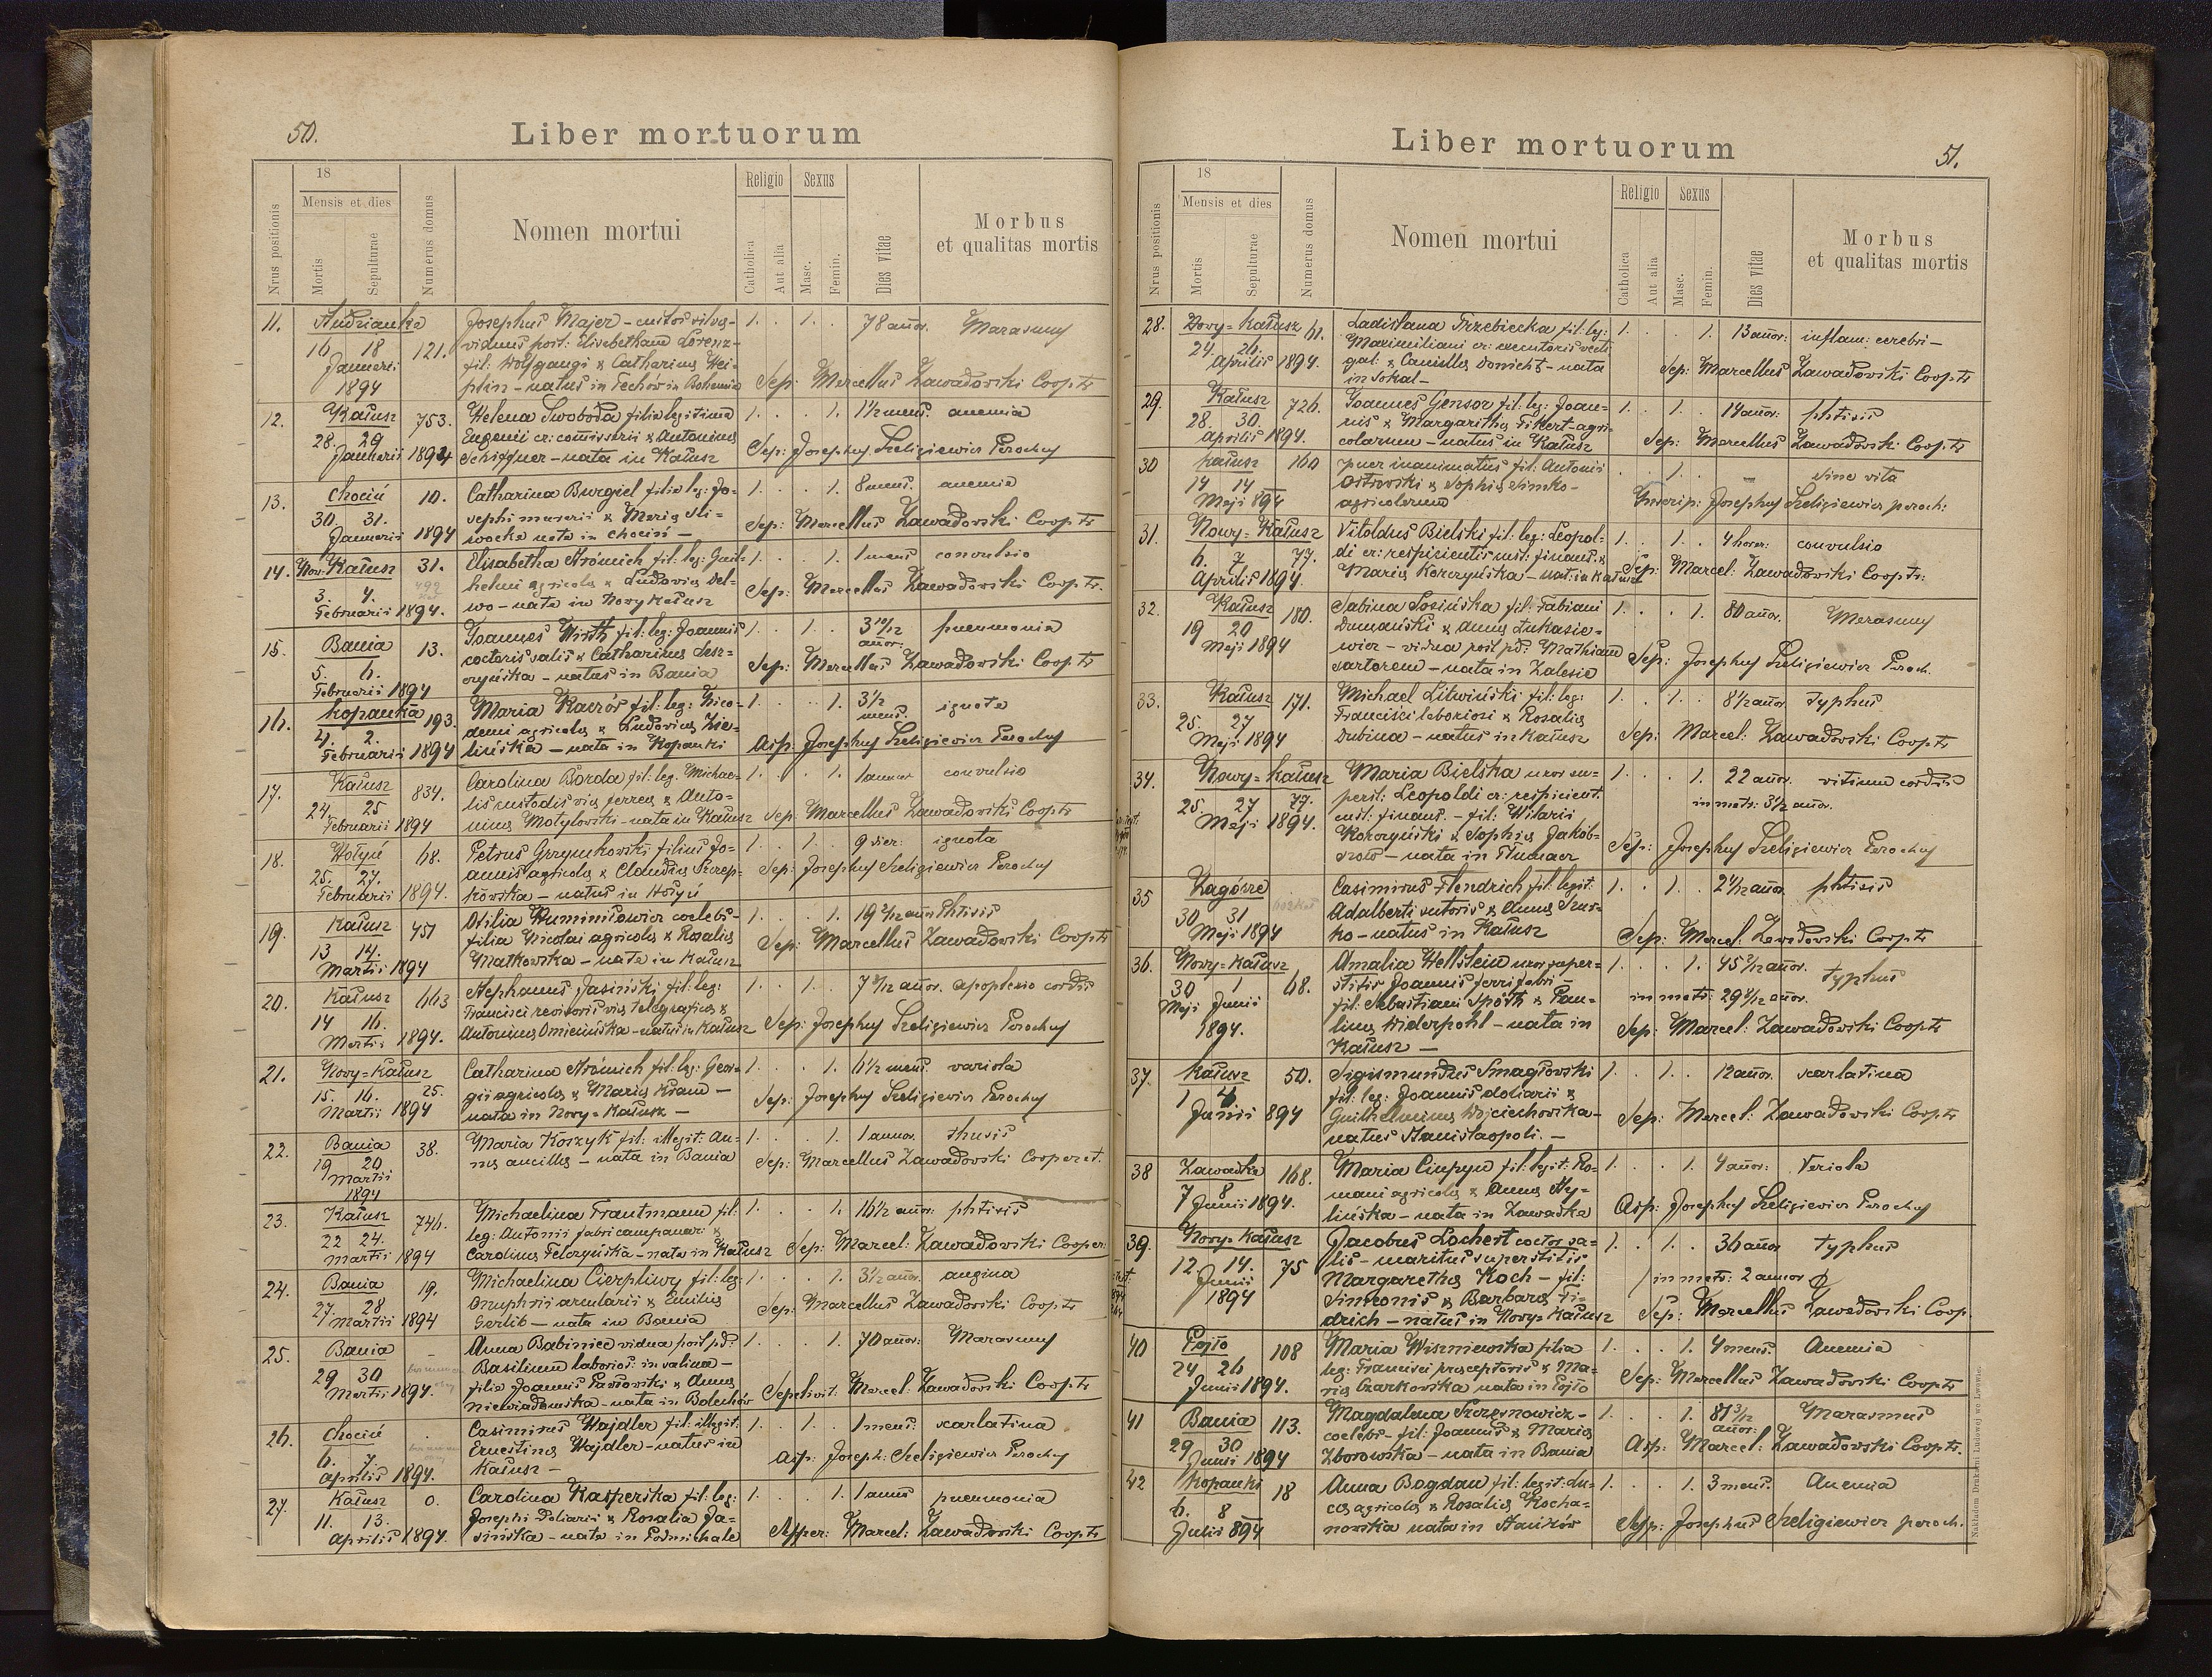 50.
Liber mortuorum
Nrus positionis
18
Mensis et dies
Mortis
Sepulturae
Numerus domus
Nomen mortui
Religio
Catholica
Aut alia
Sexus
Masc.
Femin.
Dies vitae
Morbus
et qualitas mortis
11. Josephus Majer
16 18 121. viduus post: Elisabetham Lorenz-
Januarii fil: Wolfgangi & Catharinae
1894 natus in Techow in Bohemia
1. 1. 78 annor. Marasmus
Sep: Marcellus Zawadowski Coop-tr
12. Kałusz 753. Helena Swoboda filia legitima
28. 29 Eugenii & Antoninae
Januarii 1894 Schiffner - nata in Kałusz
1. 1. 1½ mens. anemia
Sep: Josephus Szeligiewicz Parochus
13. Chocin 10. Catharina Burgiel filia leg: Jo-
30. 31. sephi & Maria Sli-
Januarii 1894 wocka nata in Chocin -
1. 1. 8 mens. anemia
Sep: Marcellus Zawadowski Coop-tr
14. Nov: Kałusz 31. Elisabetha fil: leg: Guil-
3. 4. helmi agricolae & Ludovica Del-
Februarii 1894. wo - nata in Nowy Kałusz
1. 1. 1 mens convulsio
Sep: Marcellus Zawadowski Coop-tr.
15. Bania 13. Joannes Wirth fil: leg: Joannis
5. 6. coctoris salis & Catharinae Lesz-
Februarii 1894 czyńska - natus in Bania
1. 1. 3 10/12 annor: pneumonia
Sep: Marcellus Zawadowski Coop-tr
16. Kopanka 193. Maria fil: leg: Nico-
4. 2. demi agricolae & Ludovicae Zie-
Februarii 1894 lińska - nata in Kopanki
1. 1. 3½ mens. ignota
Asp. Josephus Szeligiewicz Parochus
17. Kałusz 834. Carolina Borda fil: leg. Michae-
24. 25 lis custodis viae ferreae & Anto-
Februarii 1894 ninae Motylowski - nata in Kałusz
1. 1. 1 annor convulsio
Sep Marcellus Zawadowski Coop-tr
18. Hołyń 68. Petrus Grzymkowski filius Jo-
25. 27. annis agricolae & Claudiae Szczep-
Februarii 1894. kowska - natus in Hołyń
1. 1. 9 dier: ignota
Sep: Josephus Szeligiewicz Parochus
19. Kałusz 451 Otilia coelebs-
13 14. filia Nicolai agricolae & Rosaliae
Martii 1894 Matkowska - nata in Kałusz
1. 1. Phtisis
Sep: Marcellus Zawadowski Coop-tr
20. Kałusz 663 Stephanus Jasiński fil: leg:
14 16. Francisci &
Martii 1894. Antoninae - natus in Kałusz
1. 1. apoplexio cordis
Sep: Josephus Szeligiewicz Parochus
21. Nowy-Kałusz Catharina fil: leg: Geor-
15. 16. 25. gii agricolae & Mariae Kram -
Martii 1894 nata in Nowy-Kałusz -
1. 1. 6½ mens. variola
Sep: Josephus Szeligiewicz Parochus
22. Bania 38. Maria Koszyk fil: illegit: An-
19 20 nae ancillae - nata in Bania
Martii
1894
1. 1. 1 annor.
Sep: Marcellus Zawadowski Cooperat.
23. Kałusz 746. Michaelina Trautmann fil:
22 24. leg: Antonii fabri campanari &
Martii 1894 Carolinae - nata in Kałusz
1. 1. 16½ annor: phtisis
Sep: Marcel: Zawadowski Cooper:
24. Bania 19. Michaelina Cierpliwy fil: leg:
27. 28 Onuphrii arcularii & Emiliae
Martii 1894 Gerlib - nata in Bania
1. 1. 3½ annor. angina
Sep: Marcellus Zawadowski Coop-tr
25. Bania - Anna Babiniec vidua post pd:
29 30 Basilium laborios: in salina -
Martii 1894. filia Joannis Pawłowski & Annae
Niewiadomska - nata in Bolechów
1. 1. 70 annor: Marasmus
Sepelivit: Marcel: Zawadowski Coop-tr
26. Chocin Casimirus Wajdler fil: illegit:
6. 7. Ernestinae Wajdler - natus in
Aprilis 1894. Kałusz -
1. 1. 1 mens: scarlatina
Asp: Joseph: Szeligiewicz Parochus
27. Kałusz 0. Carolina Kasperska fil: leg:
11. 13. Josephi doliarii & Rosalia Ja-
Aprilis 1894. sińska - nata in Podmichale
1. 1. 1 annus pneumonia
Marcel: Zawadowski Coop-tr
51.
Liber mortuorum
Nrus positionis
18
Mensis et dies
Mortis
Sepulturae
Numerus domus
Nomen mortui
Religio
Catholica
Aut alia
Sexus
Masc.
Femin.
Dies vitae
Morbus
et qualitas mortis
28. Nowy-Kałusz 61. Ladislaua Trzebiecka fil: leg:
24. 26. Maximiliani cr: executoris vecti
Aprilis 1894. gal: & Camillae Donicht - nata
in Sokal -
1. 1. 13 annor: inflam: cerebri -
Sep: Marcellus Zawadowski Coop-tr
29. Kałusz 726. Joannes Gensor fil: leg: Joan-
28. 30. nis & Margarithae Fikert - agri-
Aprilis 1894. colarum - natus in Kałusz
1. 1. 14 annor: phtisis
Sep: Marcellus Zawadowski Coop-tr
30 Kałusz 160 puer inanimatus fil: Antonii
14 14 Ostrowski & Sophiae Simko-
Maji 894 agricolarum
1. sine vita
Inscrip: Josephus Szeligiewicz paroch:
31. Nowy-Kałusz Vitoldus Bielski fil: leg: Leopol-
6. 7 77. di cr: respicientis cust: finans: &
Aprilis 1894. Mariae Korczyńska - nat: in Kałusz
1. 1. 4 horar: convulsio
Sep: Marcel: Zawadowski Coop-tr:
32. Kałusz 180. Sabina Sosińska fil: Fabiani
19 20 Dumański & Annae Łukasie-
Maji 1894 wicz - vidua post pd: Mathiam
sartorem - nata in Zalesie
1. 1. 80 annor. Marasmus
Sep: Josephus Szeligiewicz Paroch.
33. Kałusz 171. Michael Litwiński fil: leg:
25. 27 Francisci laboriosi & Rosaliae
Maji 1894 Dubina - natus in Kałusz
1. 1. 8½ annor Typhus
Sep: Marcel: Zawadowski Coop-tr
34. Nowy-Kałusz Maria Bielska uxor su-
25. 27 77. perst: Leopoldi cr: respicient.
Maji 1894. cust: finans. - fil: Hilarii
Korczyński & Sophiae Jakób-
- nata in Tłumacz
1. 1. 22 annor. vitium cordis
in matr: 3½ annor.
Sep: Josephus Szeligiewicz Parochus
35 Zagórze Casimirus Hendrich fil: legit:
30 31 Adalberti sutoris & Annae
Maji 1894 ko - natus in Kałusz
1. 1. phtisis
Sep: Marcel: Zawadowski Coop-tr
36. Nowy-Kałusz Amalia Hellstein uxor super-
30 1 68. stitis Joannis ferri fabri -
Maji Junii fil: Sebastiani Späth & Pau-
1894. linae Widerpohl - nata in
Kałusz -
1. 1. typhus
in matr:
Sep: Marcel: Zawadowski Coop-tr
37. Kałusz 50. Sigismundus Smagłowski
1 4 fil: leg: Joannis doliarii &
Junii 894 Guilhelminae Wojciechowska -
natus Stanislaopoli. -
1. 1. 12 annor. scarlatina
Sep: Marcel: Zawadowski Coop-tr
38 Zawadka 168. Maria Ciupyn fil: legit: Ro-
7 8 mani agricolae & Annae Hy-
Junii 1894. lińska - nata in Zawadka
1. 1. 4 annor: Variola
Asp: Josephus Szeligiewicz Parochus
39. Nowy-Kałusz Jacobus Lochert coctor sa-
12. 14. 75 lis - maritus superstitis
Junii Margarethae Koch - fil:
1894 Simeonis & Barbarae Fi-
drich - natus in Nowy-Kałusz
1. 1. 36 annor typhus
in matr: 2 annor
Sep: Marcellus Zawadowski Coop.
40 Pojło 108 Maria Wiszniewska filia
24 26 leg: Francisci praeceptoris & Ma-
Junii 1894. riae Czarkowska nata in Pojło
1. 1. 4 mens Anemia
Sep: Marcellus Zawadowski Coop-tr
41 Bania 113. Magdalena Szczesnowicz -
29 30 coelebs - fil: Joannis & Mariae
Junii 1894 Zborowska - nata in Bania
1. 1. 81 3/12 annor: Marasmus
Asp: Marcel: Zawadowski Coop-tr.
42 Kopanki 18 Anna Bogdan fil: legit: Lu-
6. 8 cae agricolae & Rosaliae Kocha-
Julii 894 nowska nata in
1. 1. 3 mens. Anemia
Josephus Szeligiewicz paroch.
Nakładem Drukarni Ludowej we Lwowie.